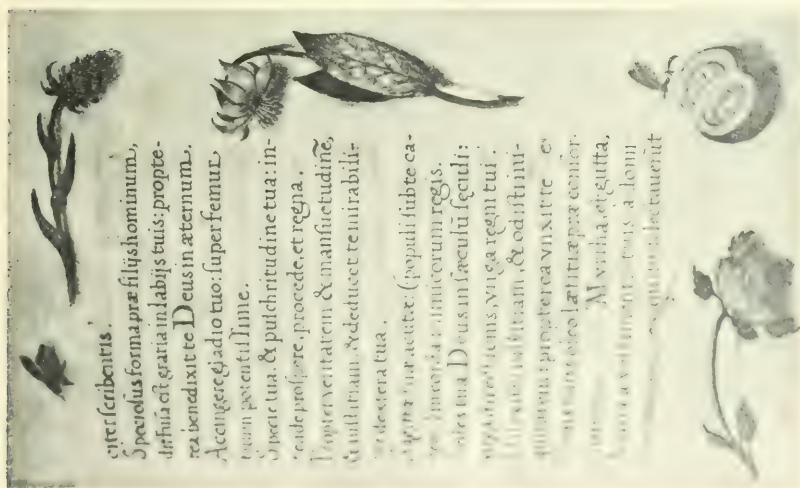 citer scribentis.
Speciosus forma præ filijs hominum,
diffusa est gratia in labijs tuis: propte-
rea benedixit te Deus in æternum.
Accingere gladio tuo: super femur
tuum potentissime.
Specie tua. & pulchritudine tua: in-
tende prospere, procede, et regna.
Propter veritatem & mansuetudinẽ,
& iustitiam. & deducet te mirabili-
ter dextera tua.
Sagittæ tuæ acutæ: (populi sub te ca-
dent) in corda inimicorum regis.
Sedes tua Deus in sæculũ sęculi:
virga regni tui.
iustitiam, & odisti ini-
propterea vnxit te
oleo lætitiæ præ consor-
Myrrha, et gutta,
a vestimentis tuis a domi-
delectauerũt